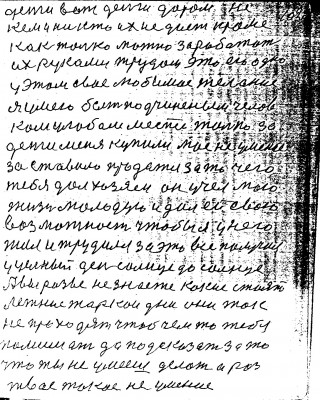 дети вот дети дором не
кем и никто их не дает кроме
как толко можно заработат
их руками трудом это его одно
у этом свае любимае желание
лучшего быт подчиненым челов
ком улюбом месте толко за
дети меня купили мое не умение
заставило продати за то чего
тебя дол хозяен он учел мою
жизн молодую и дал ее свою
возможност чтобы я у него
жил и трудился за это все получил
у целный ден солнце до солнце
Авы разве не знаете какие стоят
летние жаркои дни они так
не проходят чтоб чем то тебя
помимат да подсказат за то
что ты не умееш делат а раз
твае такое не умение